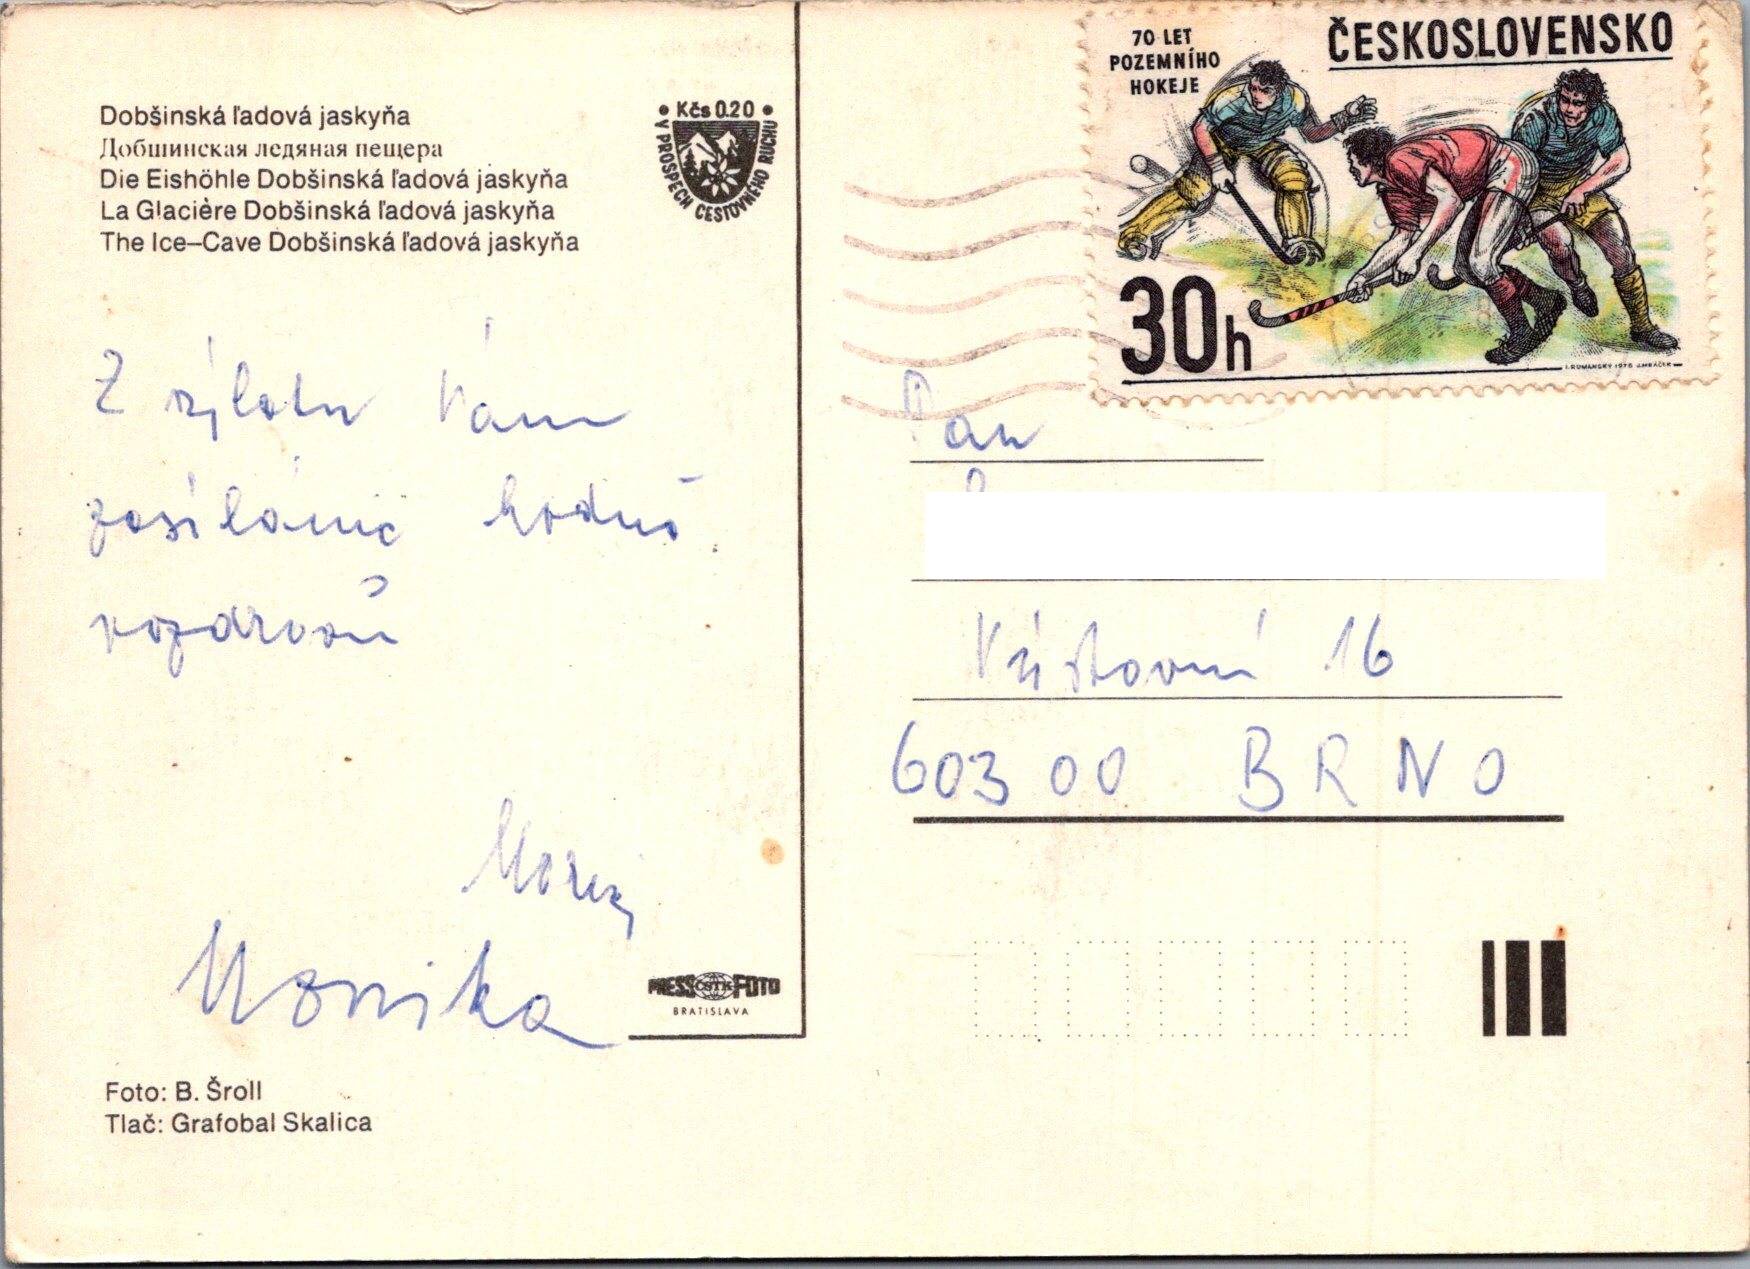 Dobšinská ľadová jaskyňa
Добшинская ледяная пещера
Die Eishöhle Dobšinská ľadová jaskyňa
La Glacière Dobšinská ľadová jaskyňa
The Ice–Cave Dobšinská ľadová jaskyňa
• Kčs 0.20 •
V PROSPECH CESTOVNÉHO RUCHU
Z výletu Vám
zasíláme hodně
pozdravů
Monika
PRESS ČSTK FOTO
BRATISLAVA
Foto: B. Šroll
Tlač: Grafobal Skalica
70 LET
POZEMNÍHO
HOKEJE
ČESKOSLOVENSKO
30h
I. RUMANSKÝ 1978 J. MRÁČEK
Pan
Výstavní 16
603 00 BRNO